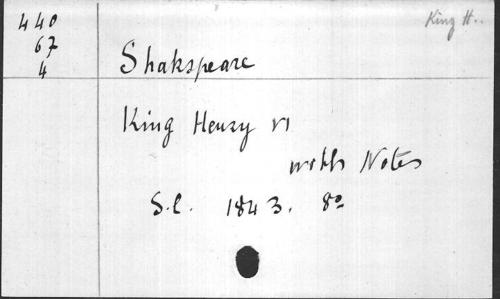 440
67
4
King H..
Shakspeare
King Henry VI
with Notes
S.l. 1843. 8º